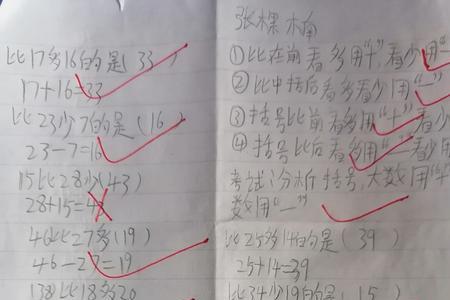 比17多16的是(33)
17+16=33
比23少7的是(16)
23-7=16
15比28少(43)
28+15=43
46比27多(19)
46-27=19
138比18多20
张棵楠
①比在前看多用"+"看少用"一
②比中括后看多看少用"一"
③括号比前看多用"+"看少
④括号比后看多用"一"看少用
考试分析括号,大数用"+
数用"一"
比25多14的是(39)
25+14=39
比34少19的是(15)